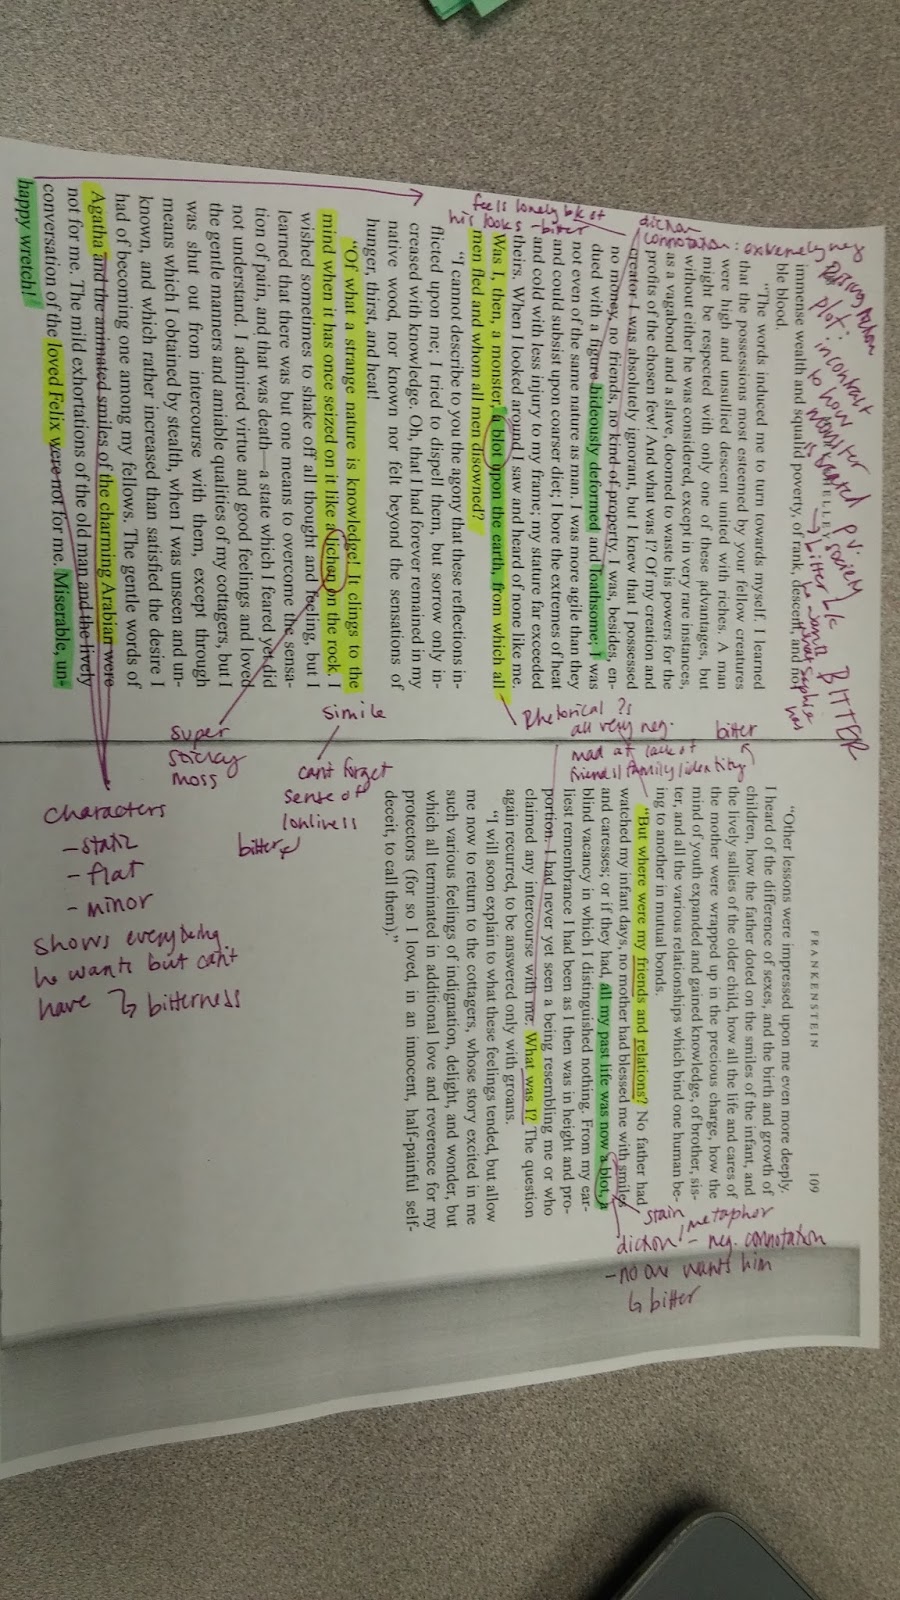 immense wealth and squalid poverty, of rank, descent, and no-
ble blood.
"The words induced me to turn towards myself. I learned
that the possessions most esteemed by your fellow creatures
were high and unsullied descent united with riches. A man
might be respected with only one of these advantages, but
without either he was considered, except in very rare instances,
as a vagabond and a slave, doomed to waste his powers for the
profits of the chosen few! And what was I? Of my creation and
creator I was absolutely ignorant, but I knew that I possessed
no money, no friends, no kind of property. I was, besides, en-
dued with a figure hideously deformed and loathsome; I was
not even of the same nature as man. I was more agile than they
and could subsist upon coarser diet; I bore the extremes of heat
and cold with less injury to my frame; my stature far exceeded
theirs. When I looked around I saw and heard of none like me.
Was I, then, a monster, a blot upon the earth, from which all
men fled and whom all men disowned?
"I cannot describe to you the agony that these reflections in-
flicted upon me; I tried to dispel them, but sorrow only in-
creased with knowledge. Oh, that I had forever remained in my
native wood, nor known nor felt beyond the sensations of
hunger, thirst, and heat!
"Of what a strange nature is knowledge! It clings to the
mind when it has once seized on it like a lichen on the rock. I
wished sometimes to shake off all thought and feeling, but I
learned that there was but one means to overcome the sensa-
tion of pain, and that was death—a state which I feared yet did
not understand. I admired virtue and good feelings and loved
the gentle manners and amiable qualities of my cottagers, but I
was shut out from intercourse with them, except through
means which I obtained by stealth, when I was unseen and un-
known, and which rather increased than satisfied the desire I
had of becoming one among my fellows. The gentle words of
Agatha and the animated smiles of the charming Arabian were
not for me. The mild exhortations of the old man and the lively
conversation of the loved Felix were not for me. Miserable, un-
happy wretch!
FRANKENSTEIN 109
"Other lessons were impressed upon me even more deeply.
I heard of the difference of sexes, and the birth and growth of
children, how the father doted on the smiles of the infant, and
the lively sallies of the older child, how all the life and cares of
the mother were wrapped up in the precious charge, how the
mind of youth expanded and gained knowledge, of brother, sis-
ter, and all the various relationships which bind one human be-
ing to another in mutual bonds.
"But where were my friends and relations? No father had
watched my infant days, no mother had blessed me with smiles
and caresses; or if they had, all my past life was now a blot, a
blind vacancy in which I distinguished nothing. From my ear-
liest remembrance I had been as I then was in height and pro-
portion. I had never yet seen a being resembling me or who
claimed any intercourse with me. What was I? The question
again recurred, to be answered only with groans.
"I will soon explain to what these feelings tended, but allow
me now to return to the cottagers, whose story excited in me
such various feelings of indignation, delight, and wonder, but
which all terminated in additional love and reverence for my
protectors (for so I loved, in an innocent, half-painful self-
deceit, to call them)."
plot: in contrast
to how
monster
is treated
society
BITTER
diction
connotation: extremely neg
feels lonely b/c of
his looks - bitter
Rhetorical ?s
all very neg.
mad at lack of
friends/family/identity
bitter
simile
can't forget
sense of
lonliness
bitter
super
sticky
moss
characters
- static
- flat
- minor
shows everything
he wants but can't
have ↳ bitterness
stain
metaphor
diction - neg. connotation
- no one wants him
↳ bitter